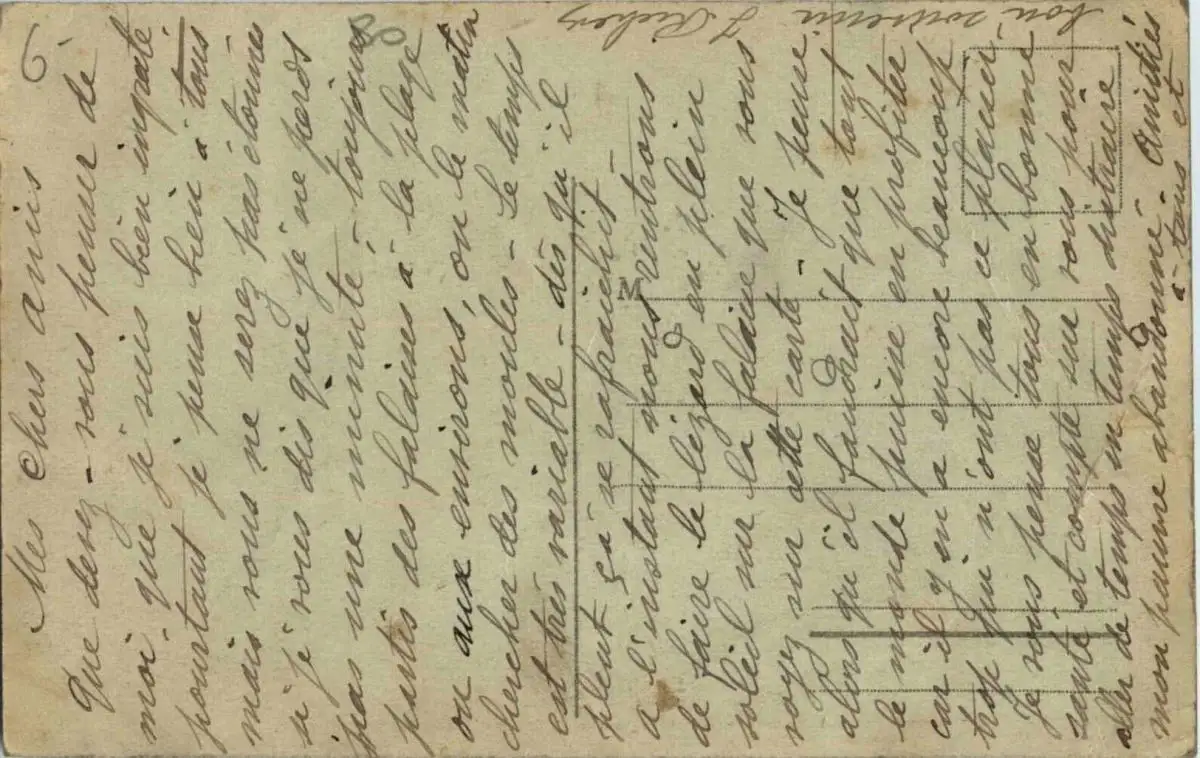 Mes chers amis
Que devez-vous penser de
moi que je suis bien ingrate
pourtant je pense bien à tous
mais vous ne serez pas étonnés
si je vous dis que je ne perds
pas une minute - toujours
partis des falaises à la plage
ou aux environs, ou le matin
chercher des moules - Le temps
est très variable - dès qu'il
pleut ça se rafraichit -
a l'instant nous rentrons
de faire le lézard en plein
soleil sur la falaise que vous
voyez sur cette carte - Je pense
alors qu'il faudrait que tout
le monde puisse en profiter
car il y en a encore beaucoup
trop qui n'ont pas ce plaisir -
Je vous pense tous en bonne
santé et compte sur vous pour
aller de temps en temps distraire
mon pauvre abandonné - Amitiés
à tous et
bon souvenir
M
6
80